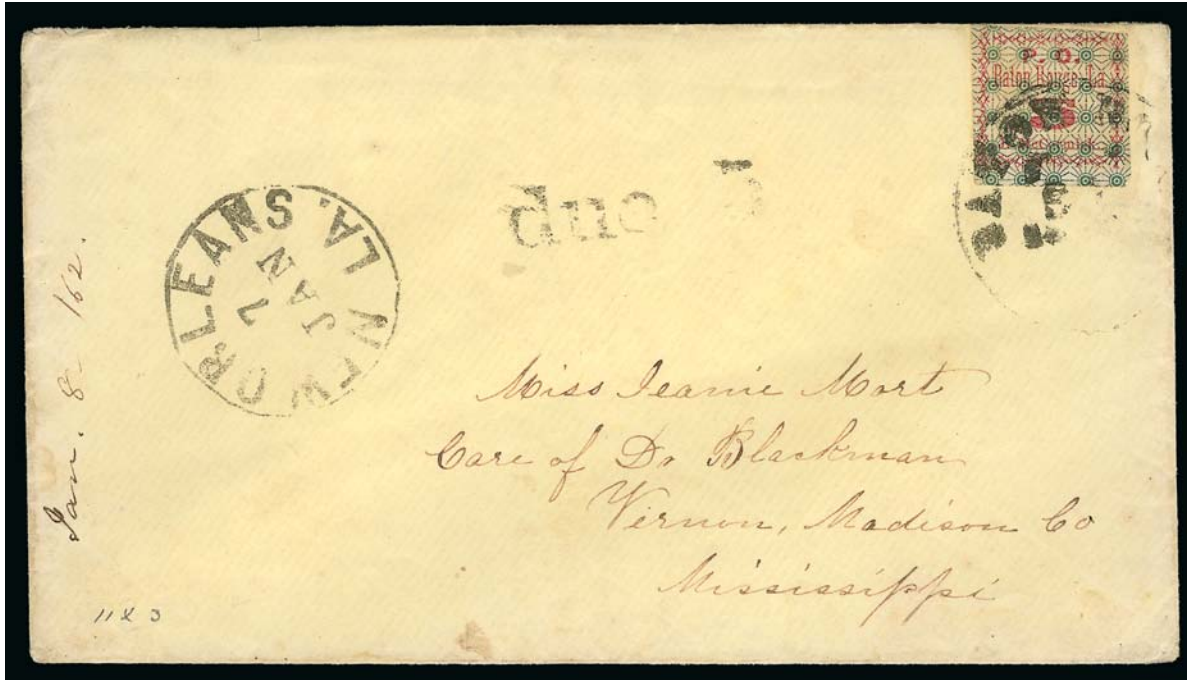 P. O.
Baton Rouge, La.
5
BATON
due 5
NEW ORLEANS. LA.
JAN
7
Jan. 8 162.
Miss Jeanie Mort
Care of Dr Blackman
Vernon, Madison Co
Mississippi
11X3